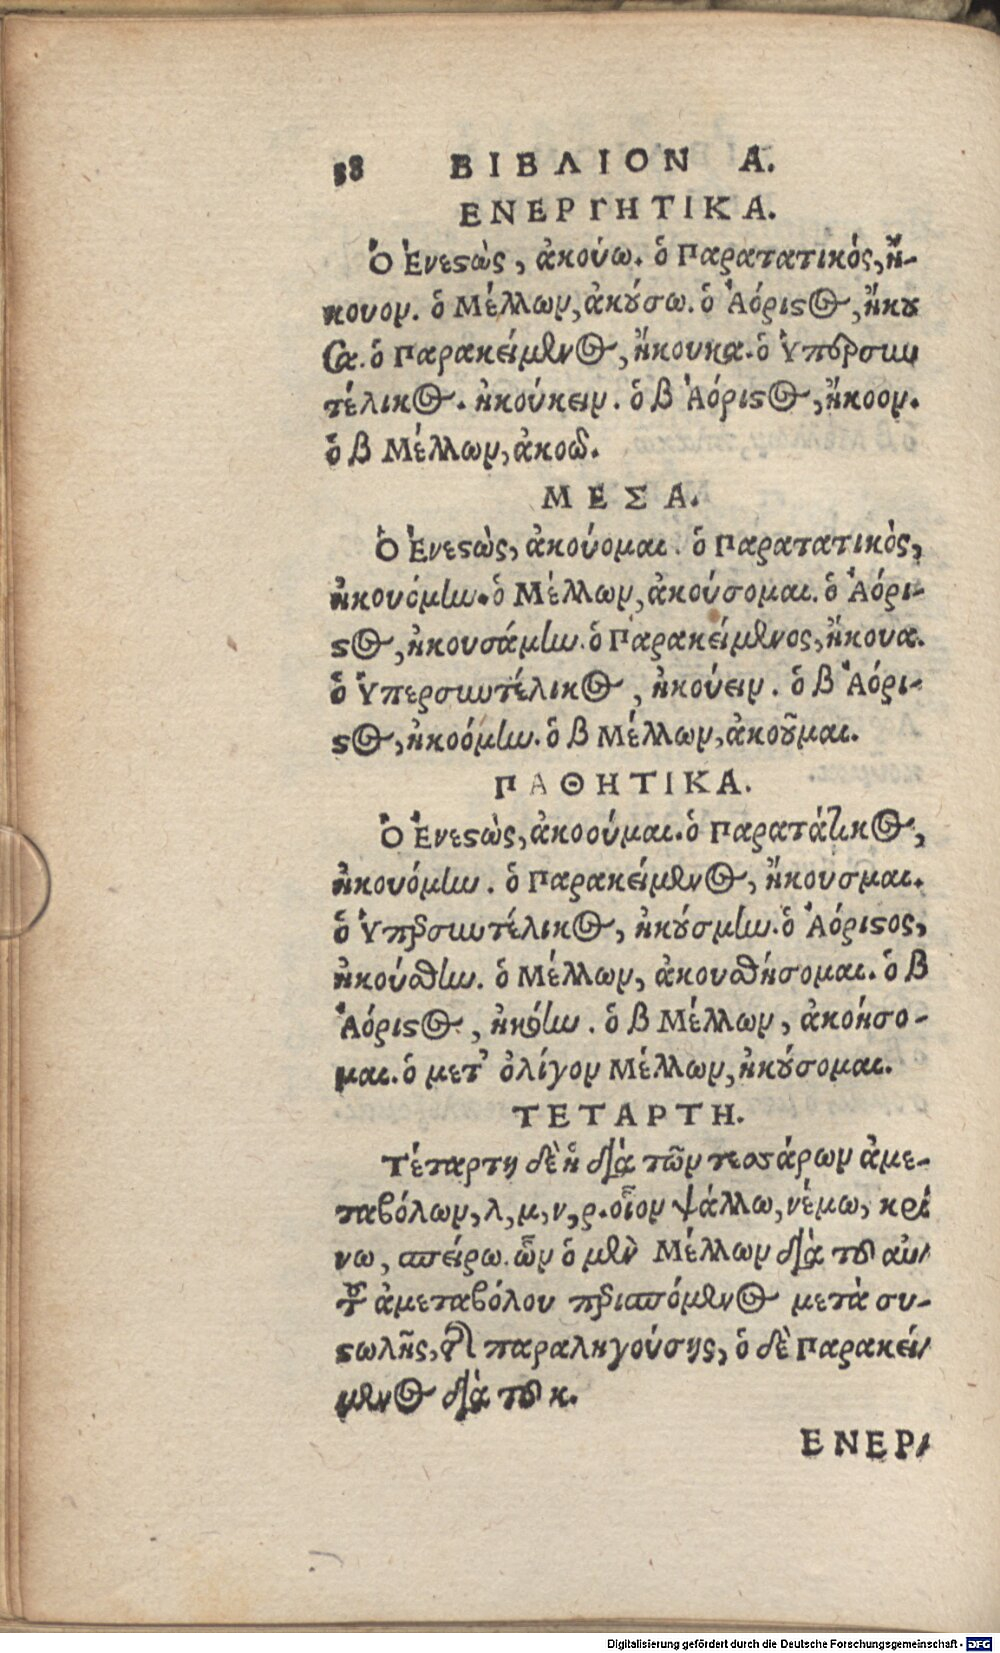 38 ΒΙΒΛΙΟΝ Α.
ΕΝΕΡΓΗΤΙΚΑ.
Ὁ Ἐνεϛὼς, ἀκούω. ὁ Παρατατικός, ἤ-
κουον. ὁ Μέλλων, ἀκȣ́σω. ὁ Ἀόριϛος, ἤκȣ
σα. ὁ Παρακείμενος, ἤκουκα. ὁ Ὑπερσιω
τέλικος. ἠκούκειν. ὁ β Ἀόριϛος, ἤκοον.
ὁ β Μέλλων, ἀκοῶ.
ΜΕΣΑ.
Ὁ Ἐνεϛὼς, ἀκούομαι. ὁ Παρατατικὸς,
ἠκουόμlω. ὁ Μέλλων, ἀκούσομαι. ὁ Ἀόρι-
ϛος, ἠκουσάμlω. ὁ Παρακείμενος, ἤκουα.
ὁ Ὑπερσιωτέλικος, ἠκούειν. ὁ β Ἀόρι-
ϛος, ἠκοόμlω. ὁ β Μέλλων, ἀκοῦμαι.
ΠΑΘΗΤΙΚΑ.
Ὁ Ἐνεϛὼς, ἀκοούμαι. ὁ Παρατάτικος,
ἠκουόμlω. ὁ Παρακείμενος, ἤκουσμαι.
ὁ Ὑπερσιωτέλικος, ἠκȣ́σμlω. ὁ Ἀόριϛος,
ἠκούθlω. ὁ Μέλλων, ἀκουθήσομαι. ὁ β
Ἀόριϛος, ἠκόlω. ὁ β Μέλλων, ἀκοήσο-
μαι. ὁ μετ' ὀλίγον Μέλλων, ἠκȣ́σομαι.
ΤΕΤΑΡΤΗ.
Τέταρτη δὲ ἡ διὰ τῶν τεσσάρων ἀμε-
ταβόλων, λ, μ, ν, ρ. οἷον ψάλλω, νέμω, κρί
νω, σπείρω. ὧν ὁ μὲν Μέλλων διὰ τοῦ αὐ-
τȣ͂ ἀμεταβόλου περισπόμενος μετὰ συ-
ϛωλῆς, τῆς παραληγούσης, ὁ δὲ Παρακεί-
μενος διὰ τοῦ κ.
ΕΝΕΡ-
Digitalisierung gefördert durch die Deutsche Forschungsgemeinschaft - DFG